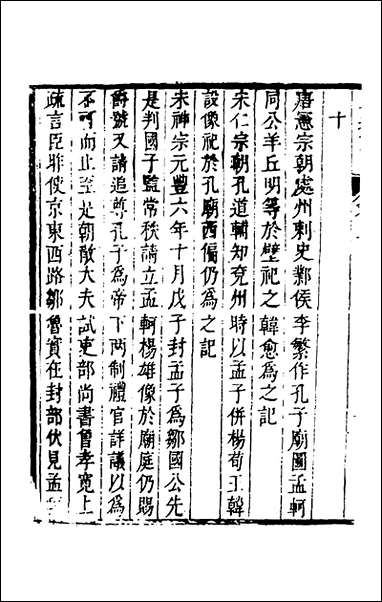 十
唐憲宗朝處州刺史鄴侯李繁作孔子廟圖孟軻
同公羊丘明等於壁祀之韓愈為之記
宋仁宗朝孔道輔知兖州時以孟子併楊荀王韓
設像祀於孔廟西偏仍為之記
宋神宗元豐六年十月戊子封孟子為鄒國公先
是判國子監常秩請立孟軻楊雄像於廟庭仍賜
爵號又請追尊孔子為帝下兩制禮官詳議以為
不可而止至是朝散大夫試吏部尚書曾孝寛上
疏言臣昨使京東西路鄒魯實在封部伏見孟